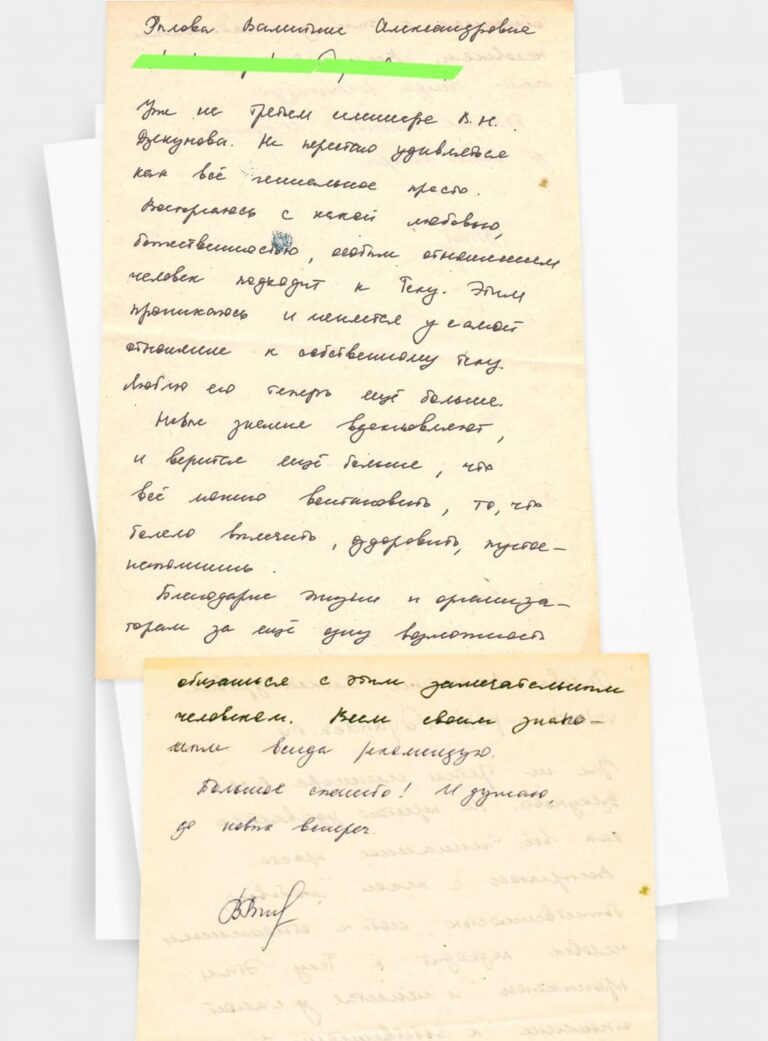 Валентине Александровне
Уже на третьем семинаре В.Н.
Дзекунова. Не перестаю удивляться
как всё гениальное просто.
Восторгаюсь с какой любовью,
божественностью, особым отношением
человек подходит к Телу. Этим
проникаюсь и меняется у самой
отношение к собственному телу.
Люблю его теперь ещё больше.
Новые знания вдохновляют,
и верится ещё больше, что
всё можно восстановить, то, что
болело вылечить, оздоровить, пустое –
наполнишь.
Благодарю жизни и организа-
торам за ещё одну возможность
общаться с этим замечательным
человеком. Всем своим знако-
мым всегда рекомендую.
Большое спасибо! И думаю,
до новых встреч.